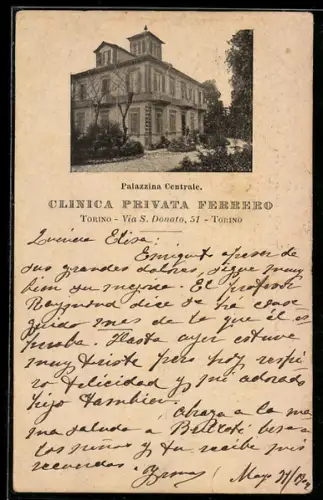 Palazzina Centrale.
CLINICA PRIVATA FERRERO
TORINO - Via S. Donato, 51 - TORINO
Querida Elisa:
Enrique a pesar de
sus grandes dolores, sigue muy
bien su mejoria. El profesor
Raymond dice se há conse
guido mas de lo que él es
peraba. Hasta ayer estuve
muy triste pero hoy respi
ro felicidad y mi adorado
hijo tambien.
Abraza a la ma
ma saluda a Beltrati besa a
los niños y tu recibe mis
recuerdos.
May 31/